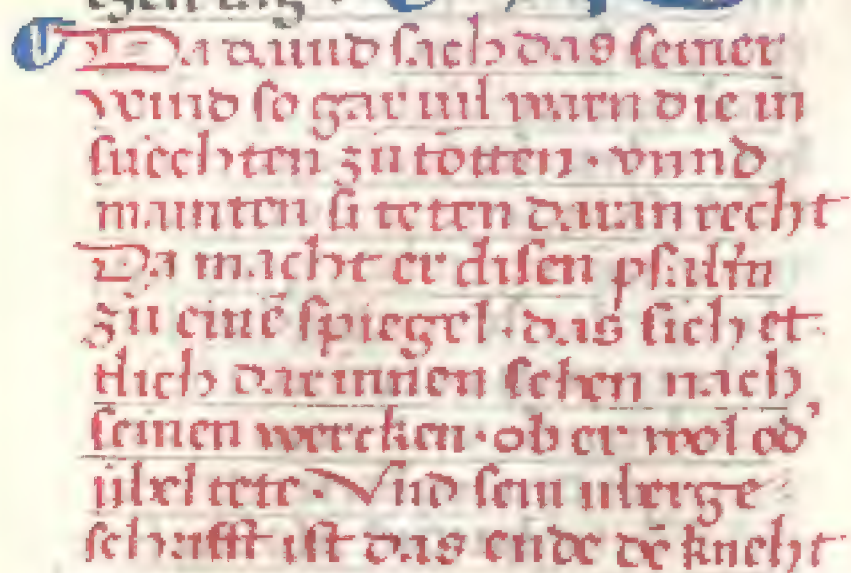 Dauid sach das seiner
veind so gar uil warn die in
suechten zu tötten · vnnd
mainten si teten daran recht
Da macht er disen psalm̄
zu einē spiegel · das sich et-
tlich darinnen sehen nach
seinen wercken · ob er wol od'
übel tete · Vnd sein überge
schrifft ist das ende dē knecht